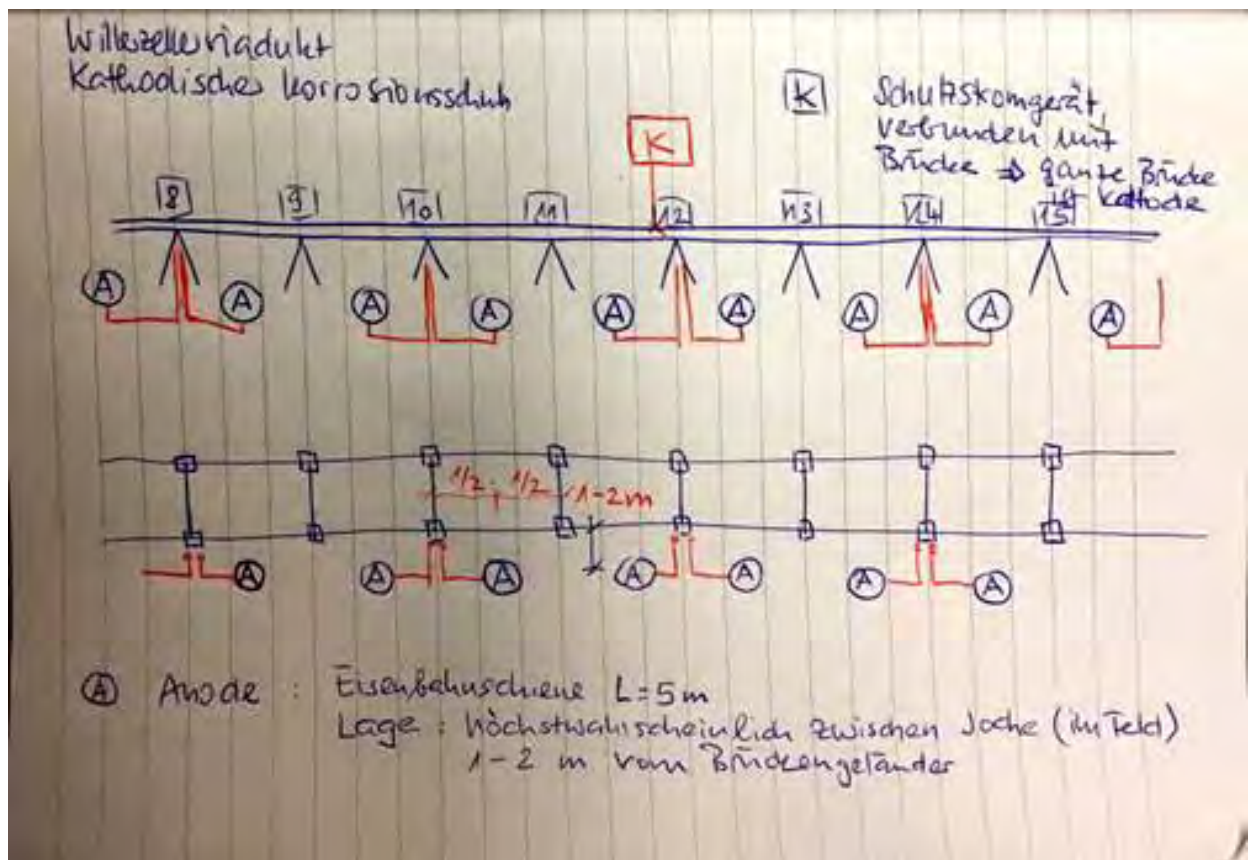 Willerzellerviadukt
Kathodischer Korrosionsschutz
K Schutzstromgerät,
verbunden mit
Brücke ⇒ ganze Brücke
ist Kathode
K
8 9 10 11 12 13 14 15
A A A A A A A A A
1/2 1/2 1-2m
A A A A A A A
A Anode : Eisenbahnschiene L=5m
Lage : höchstwahrscheinlich zwischen Joche (im Feld)
1-2 m vom Brückengeländer